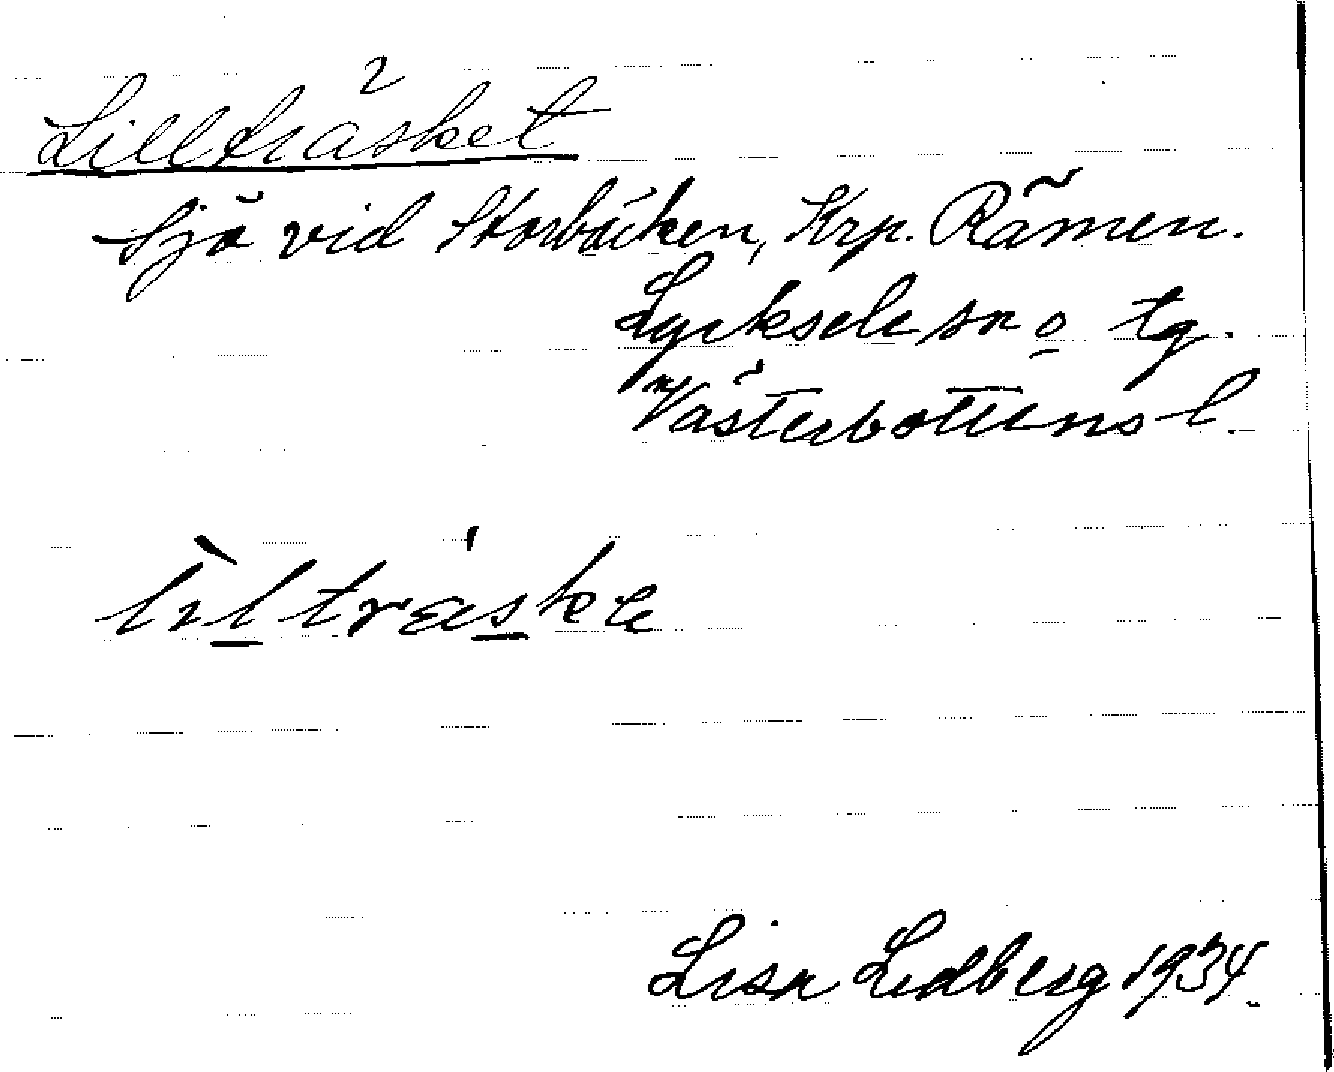 Lillträsket
Sjö vid Storbäcken, Krp. Råmen.
Lycksele sn o tg.
Västerbottens l.
lìlträ́ske
Lisa Lidberg 1934.